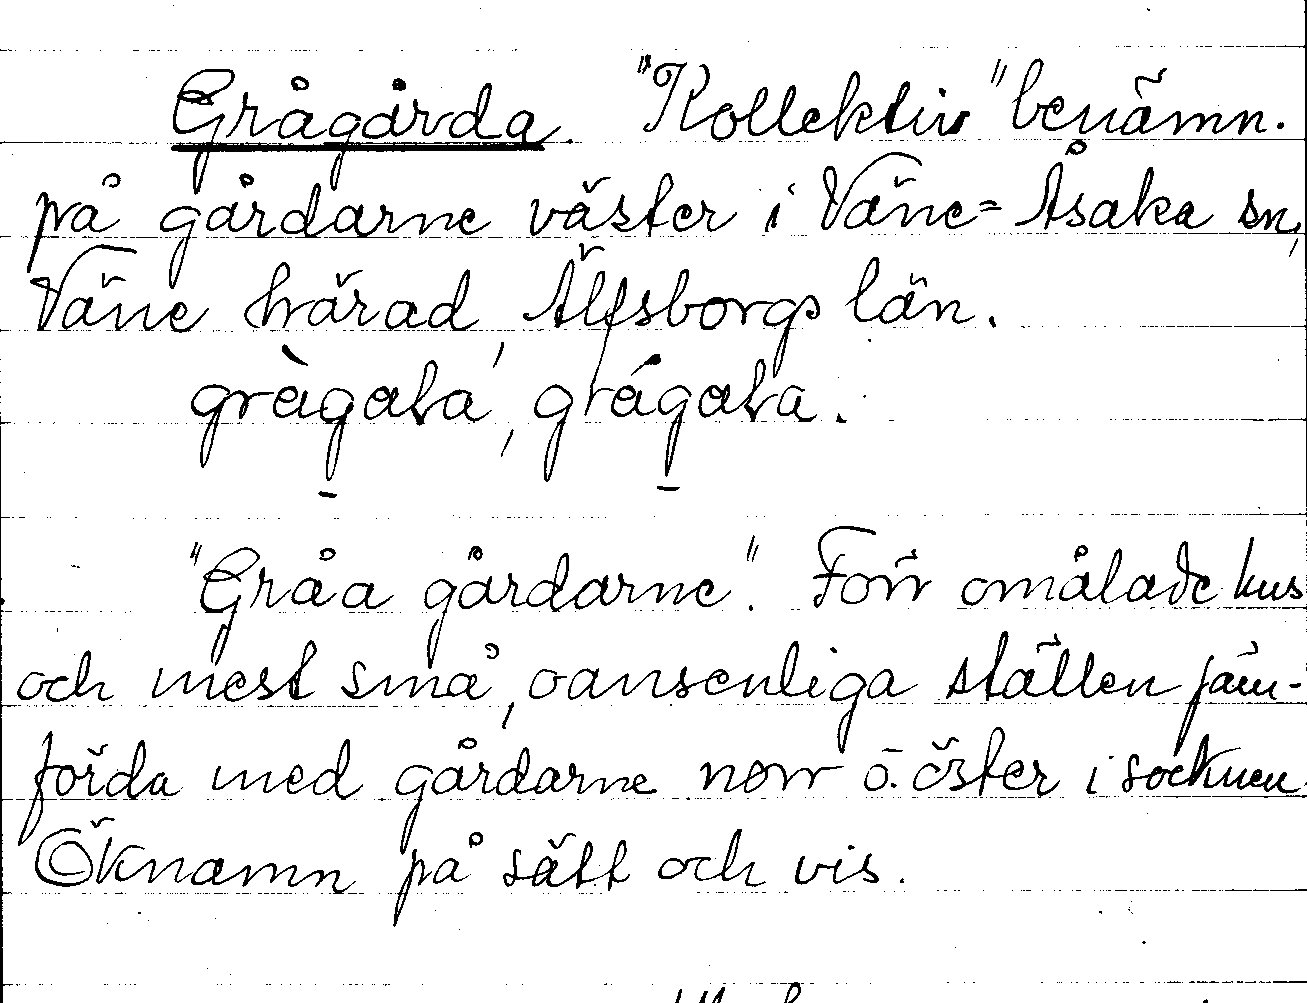 Grågårda. "Kollektiv" benämn.
på gårdarne väster i Väne-Åsaka sn,
Väne härad, Älfsborgs län.
gràgaɫa, grágaɫa.
"Gråa gårdarne". Förr omålade hus
och mest små, oansenliga ställen jäm-
förda med gårdarne norr o. öster i socknen
Öknamn på sätt och vis.